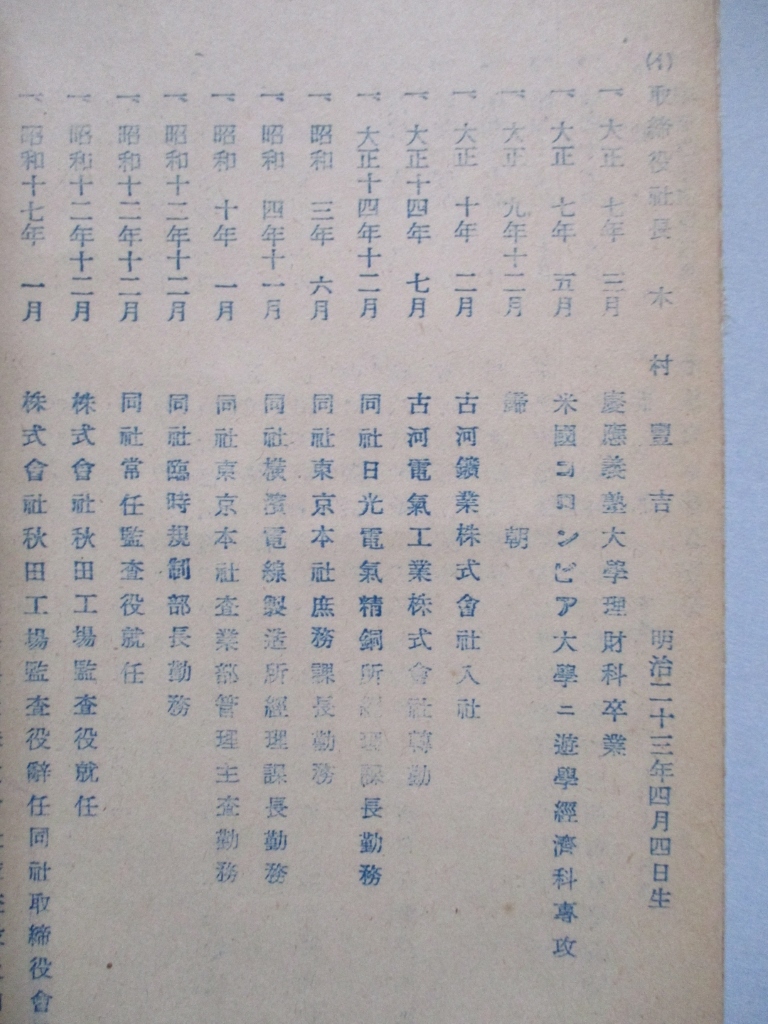 (イ)取締役社長 木村豐吉 明治二十三年四月四日生
一、大正 七年 三月 慶應義塾大學理財科卒業
一、大正 七年 五月 米國コロンビア大學ニ遊學經濟科專攻
一、大正 九年十二月 歸朝
一、大正 十年 二月 古河鑛業株式會社入社
一、大正十四年 七月 古河電氣工業株式會社轉勤
一、大正十四年十二月 同社日光電氣精銅所經理課長勤務
一、昭和 三年 六月 同社東京本社庶務課長勤務
一、昭和 四年十一月 同社横濱電線製造所經理課長勤務
一、昭和 十年 一月 同社東京本社査業部管理主査勤務
一、昭和十二年十二月 同社臨時規制部長勤務
一、昭和十二年十二月 同社常任監査役就任
一、昭和十二年十二月 株式會社秋田工場監査役就任
一、昭和十七年 一月 株式會社秋田工場監査役辭任同社取締役會